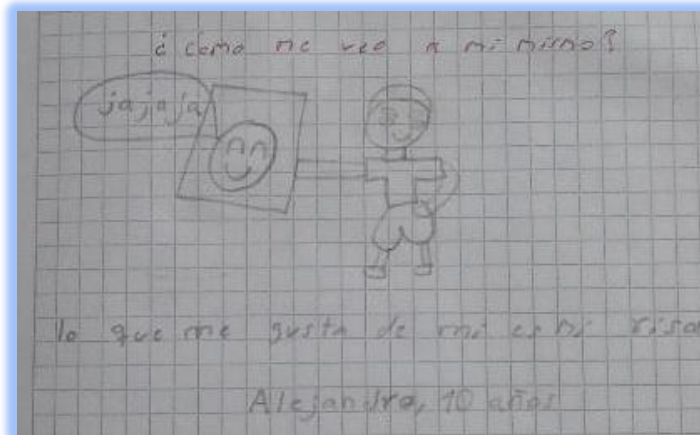 ¿ como me veo a mi mismo?
jajaja
lo que me gusta de mi es mi risa
Alejandro, 10 años